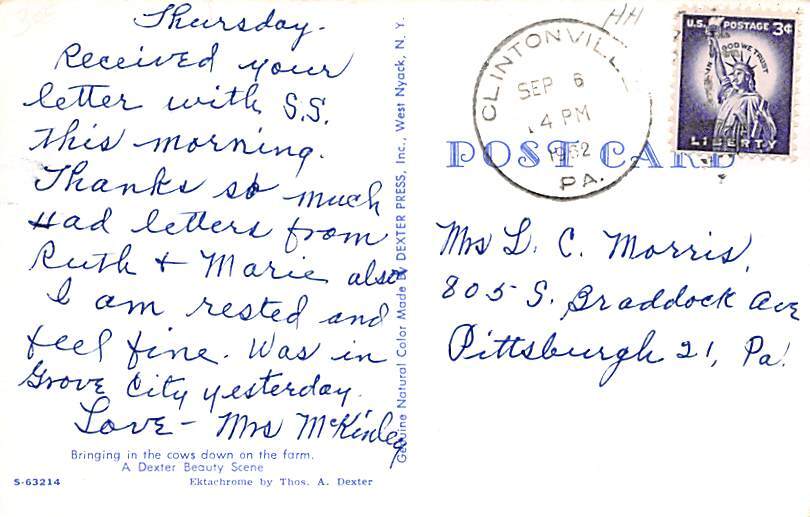 Thursday.
Received your
letter with S.S.
this morning.
Thanks so much
Had letters from
Ruth + Marie also
I am rested and
feel fine. Was in
Grove City yesterday.
Love - Mrs McKinley
Bringing in the cows down on the farm.
A Dexter Beauty Scene
S-63214
Ektachrome by Thos. A. Dexter
Genuine Natural Color Made By DEXTER PRESS, Inc., West Nyack, N. Y.
HH
CLINTONVILLE
SEP 6
4 PM
1962
PA.
U.S. POSTAGE 3¢
IN GOD WE TRUST
LIBERTY
POST CARD
Mrs L. C. Morris,
805 S. Braddock Ave
Pittsburgh 21, Pa.